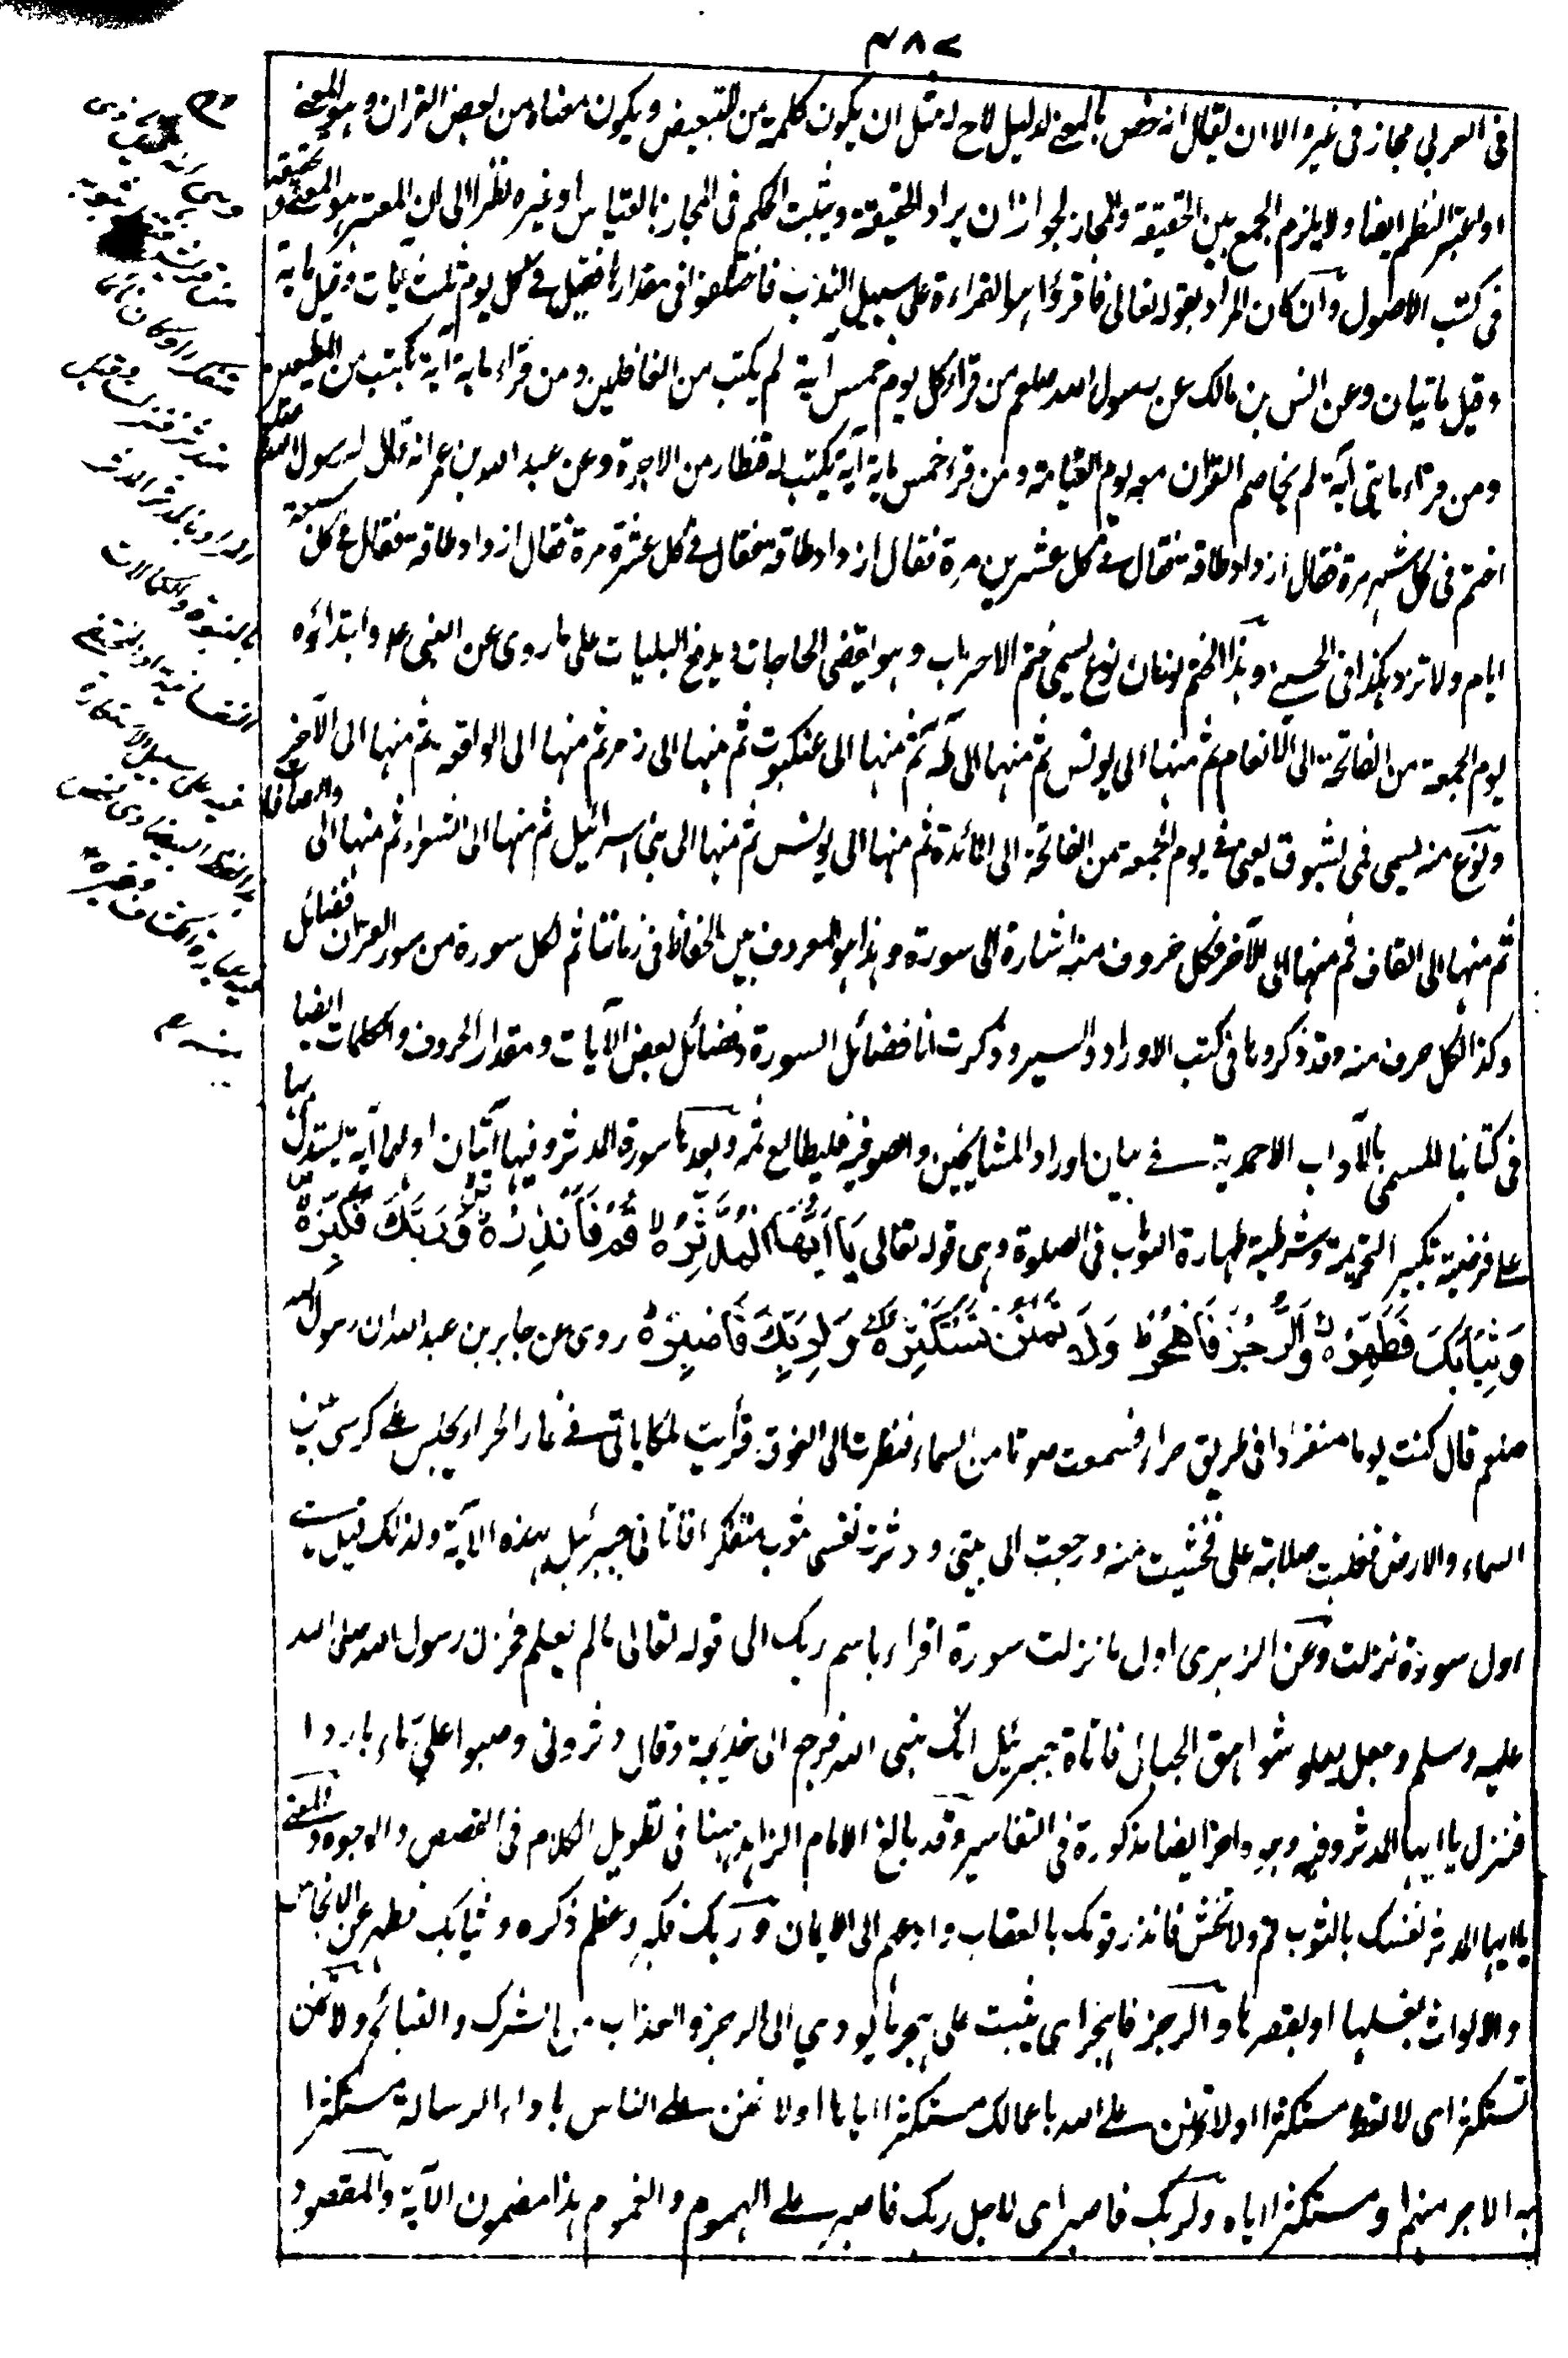 ٤٨٧
فى العربي مجاز فى غيره الا ان يقال انه خص بالمعنى لدليل لاح له مثل ان يكون كلمة من للتبعيض ويكون معناه من بعض القران وهو المعنى
او اعتبر النظم ايضا ولا يلزم الجمع بين الحقيقة والمجاز لجواز ان يراد الحقيقة ويثبت الحكم فى المجاز بالقياس او غيره نظرا الى ان المعتبر هو المعنى وتحقيقه
فى كتب الاصول وان كان المراد بقوله تعالى فاقرؤا هو القراءة على سبيل الندب فاختلفوا فى مقدارها فقيل فى كل يوم ثلث آيات وقيل ماية
وقيل ماتيان وعن انس بن مالك عن رسول الله صلعم من قراء كل يوم خمس آية لم يكتب من الغافلين ومن قراء ماية آية يكتب من المطيعين
ومن قراء مايتى آية لم يخاصم القرآن معه يوم القيامة ومن قراء خمس ماية آية يكتب له قنطار من الاجرة وعن عبد الله بن عمر انه قال له رسول الله صلعم
اختم فى كل شهر مرة فقال ازداد طاقة فقال فى كل عشرين مرة فقال ازداد طاقة فقال فى كل عشرة مرة فقال ازداد طاقة فقال فى كل سبعة
ايام ولا تزد هكذا فى الحسينى وهذا الختم نوعان نوع يسمى ختم الاحزاب وهو يقضى الحاجات ويدفع البليات على ما روى عن النبى عم وابتدائه
يوم الجمعة من الفاتحة الى الانعام ثم منها الى يونس ثم منها الى طه ثم منها الى عنكبوت ثم منها الى زمر ثم منها الى الواقعه ثم منها الى الآخر
ونوع منه يسمى فمى بشوق يعنى فى يوم الجمعة من الفاتحة الى المائدة ثم منها الى يونس ثم منها الى بنى اسرائيل ثم منها الى الشعراء ثم منها الى والصافات
ثم منها الى القاف ثم منها الى الآخر فكل حروف منه اشارة الى سورة وهذا هو المعروف بين الحفاظ فى زماننا ثم لكل سورة من سور القرآن فضائل
وكذا لكل حرف منه وقد ذكروها فى كتب الاوراد والسير وذكرت انا فضائل السورة وفضائل بعض الآيات ومقدار الحروف والكلمات ايضا
فى كتابنا المسمى بالآداب الاحمدية فى بيان اوراد المشايخين والصوفيه فليطالع ثمه وبعدها سورة المدثر وفيها آيتان اولهما آية يستدل بها
على فرضية تكبير التحريمة وشرطية طهارة الثوب فى الصلوة وهى قوله تعالى يَا اَيُّهَا الْمُدَّثِّرُ قُمْ فَاَنْذِرْ وَرَبَّكَ فَكَبِّرْ
وَثِيَابَكَ فَطَهِّرْ وَالرُّجْزَ فَاهْجُرْ وَلَا تَمْنُنْ تَسْتَكْثِرُ وَلِرَبِّكَ فَاصْبِرْ روى عن جابر بن عبد الله ان رسول الله
صلعم قال كنت يوما منفردا فى طريق حراء فسمعت صوتا من السماء فنظرت الى الفوق فرأيت ملكا ياتى فى غار الحراء يجلس على كرسى بين
السماء والارض فغلبت صلابته على فخشيت منه ورجعت الى بيتى ودثرت نفسى بثوب متفكرا فاتانى جبرئيل بهذه الآية ولذلك قيل هى
اول سورة نزلت وعن الزهرى اول ما نزلت سورة اقراء باسم ربك الى قوله تعالى ما لم يعلم فحزن رسول الله صلى الله
عليه وسلم وجعل يعلو شواهق الجبال فاتاه جبرئيل انك نبى الله فرجع الى خديجة وقال دثرونى وصبوا علي ماء باردا
فنزل يا ايها المدثر وفيه وجوه اخر ايضا مذكورة فى التفاسير وقد بالغ الامام الزاهد ههنا فى تطويل الكلام فى القصص والوجوه والمعنى
يا ايها المدثر نفسك بالثوب قم ولا تخش فانذر قومك بالعقاب وادعهم الى الايمان وربك فكبر وعظم ذكره وثيابك فطهر عن الانجاس
والالواث بغسلها او بقصرها والرجز فاهجر اى يثبت على هجر ما يودي الى الرجز والعذاب من الشرك والقبائح ولا تمنن
تستكثر اى لا تعط مستكثرا او لا تمنن على الله باعمالك مستكثرا اياها او لا تمنن على الناس باداء الرسالة مستكثرا
به الاجر منهم او مستكثرا اياه ولربك فاصبر اى لاجل ربك فاصبر على الهموم والغموم هذا مضمون الآية والمقصود